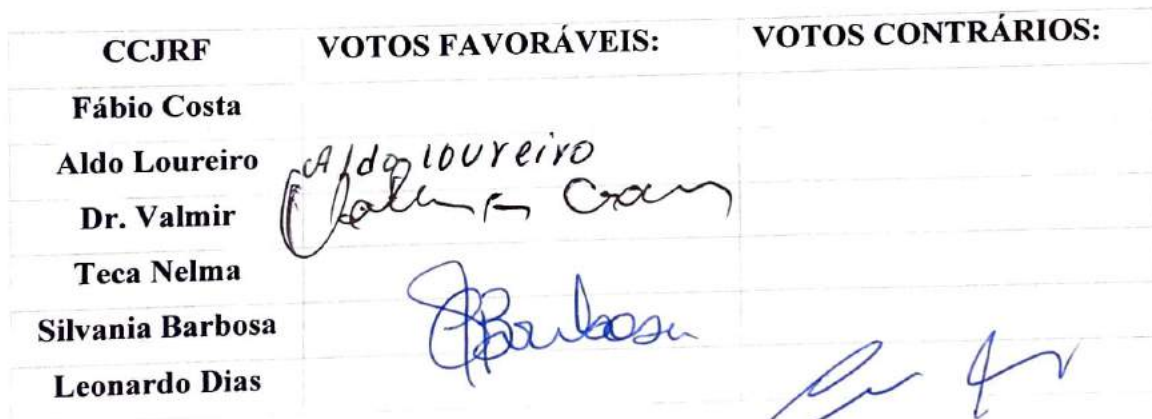 CCJRF VOTOS FAVORÁVEIS: VOTOS CONTRÁRIOS:
Fábio Costa
Aldo Loureiro Aldo loureiro
Dr. Valmir
Teca Nelma
Silvania Barbosa SBarbosa
Leonardo Dias